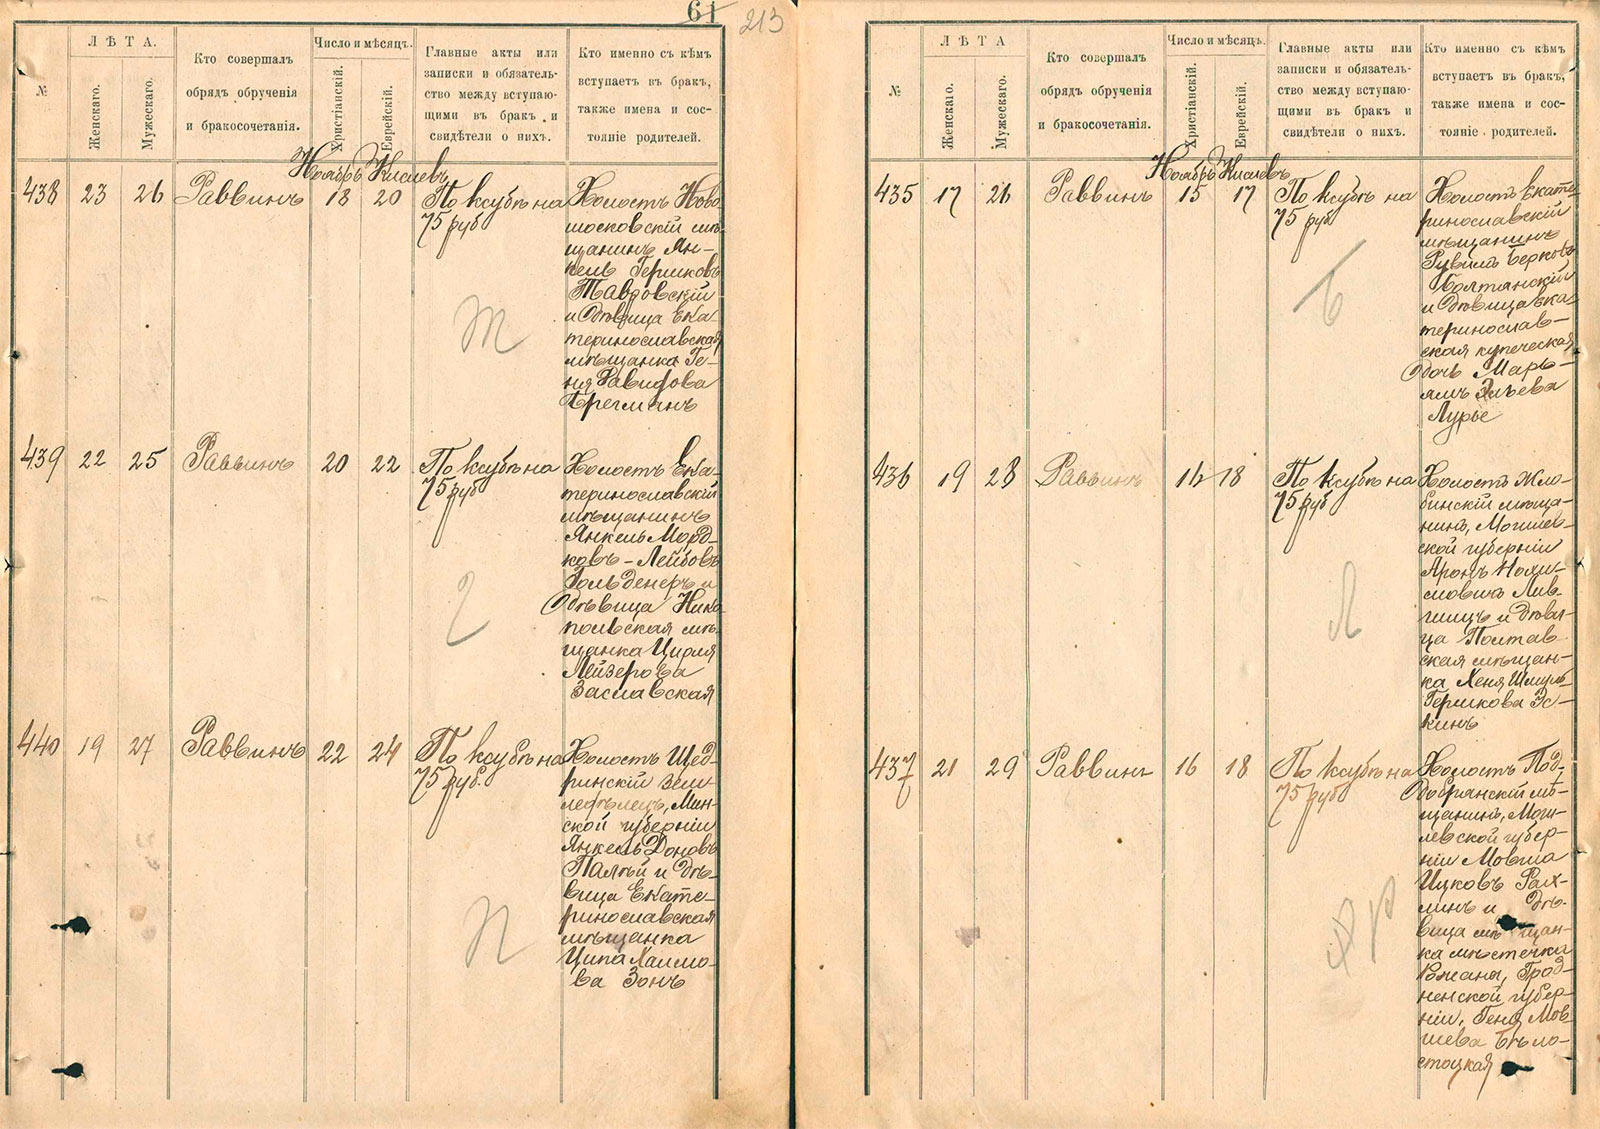 61
213
№
ЛѢТА.
Женскаго.
Мужескаго.
Кто совершалъ
обрядъ обрученія
и бракосочетанія.
Число и мѣсяцъ.
Христіанскій.
Еврейскій.
Главные акты или
записки и обязатель-
ство между вступаю-
щими въ бракъ и
свидѣтели о нихъ.
Кто именно съ кѣмъ
вступаетъ въ бракъ,
также имена и сос-
тояніе родителей.
Ноябрь Кислевъ
438 23 26 Раввинъ 18 20
По ксубѣ на
75 руб
Холостъ Ново
московскій мѣ-
щанинъ Ян-
кель Гершковъ
Тавровскій
и дѣвица Ека-
теринославская
мѣщанка Ге-
ня Давидова
Брегманъ
Т
439 22 25 Раввинъ 20 22
По ксубѣ на
75 руб
Холостъ Ека-
теринославскій
мѣщанинъ
Янкель Морд-
ковъ-Лейбовъ
Гольденеръ и
дѣвица Нико
польская мѣ-
щанка Цирля
Лейзерова
Заславская
440 19 27 Раввинъ 22 24
По ксубѣ на
75 руб.
Холостъ Щед-
ринскій земле-
дѣлецъ, Мин-
ской губерніи
Янкель
и дѣ-
вица Екате-
ринославская
мѣщанка
Ципа Хаимо-
ва Зонъ
П
№
ЛѢТА
Женскаго.
Мужескаго.
Кто совершалъ
обрядъ обрученія
и бракосочетанія.
Число и мѣсяцъ.
Христіанскій.
Еврейскій.
Главные акты или
записки и обязатель-
ство между вступаю-
щими въ бракъ и
свидѣтели о нихъ.
Кто именно съ кѣмъ
вступаетъ въ бракъ,
также имена и сос-
тояніе родителей.
Ноябрь Кислевъ
435 17 26 Раввинъ 15 17
По ксубѣ на
75 руб
Холостъ Екате-
ринославскій
мѣщанинъ
Рувимъ Берковъ
Болтянскій
и дѣвица Ека-
теринослав-
ская купеческая
дочь Марь-
ямъ
Лурье
Б
436 19 28 Раввинъ 16 18
По ксубѣ на
75 руб
Холостъ Жло-
бинскій мѣща-
нинъ, Могилев-
ской губерніи
Аронъ Нохи-
мовичъ Лив-
шицъ и дѣви-
ца Полтав-
ская мѣщан-
ка Хеня Шмуль-
Гершкова Эс-
кинъ
Л
437 21 29 Раввинъ 16 18
По ксубѣ на
75 руб
Холостъ Под-
добрянскій мѣ-
щанинъ, Моги-
левской губер-
ніи Мовша
Ицковъ Рах-
линъ и дѣ-
вица мѣщан-
ка мѣстечка
Рожана, Грод-
ненской губер-
ніи, Геня Мов-
шева Бѣло-
стоцкая
Р